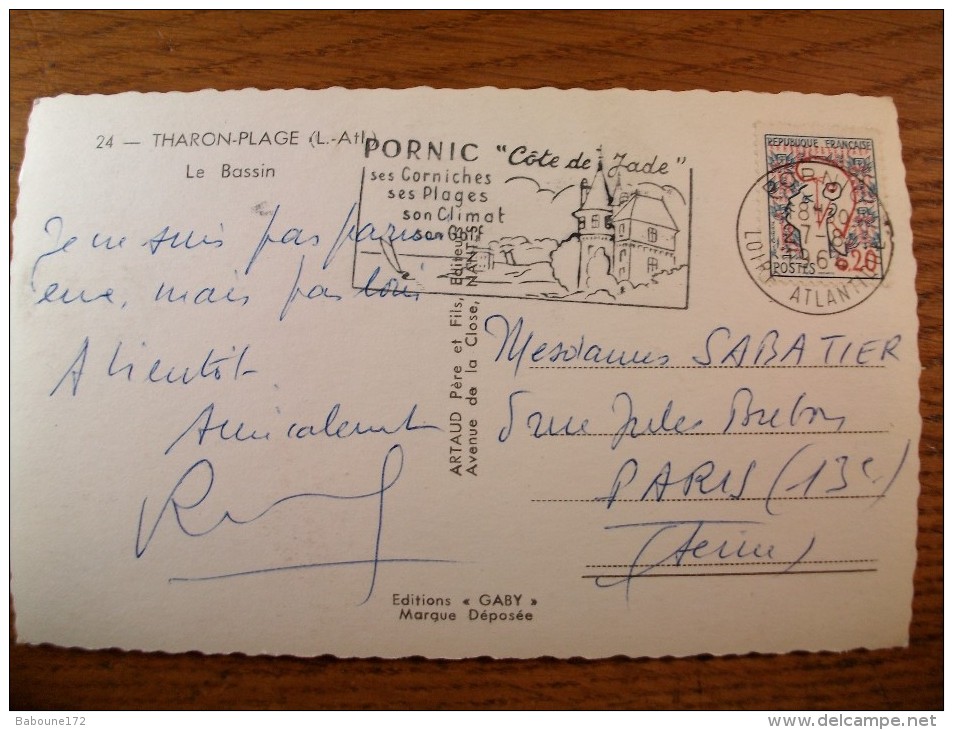 24 — THARON-PLAGE (L.-Atl.)
Le Bassin
PORNIC "Côte de Jade"
ses Corniches
ses Plages
son Climat
son Golf
REPUBLIQUE FRANÇAISE
POSTES 0,20
PORNIC
18-20
7-8
LOIRE ATLANTIQUE
Je ne suis pas
mais pas loin
A bientôt
Amicalement
ARTAUD Père et Fils, Editeurs
Avenue de la Close, NANTES
Mesdames SABATIER
5 rue Jules Breton
PARIS (13e)
(Seine)
Editions « GABY »
Marque Déposée
Baboune172
www.delcampe.net